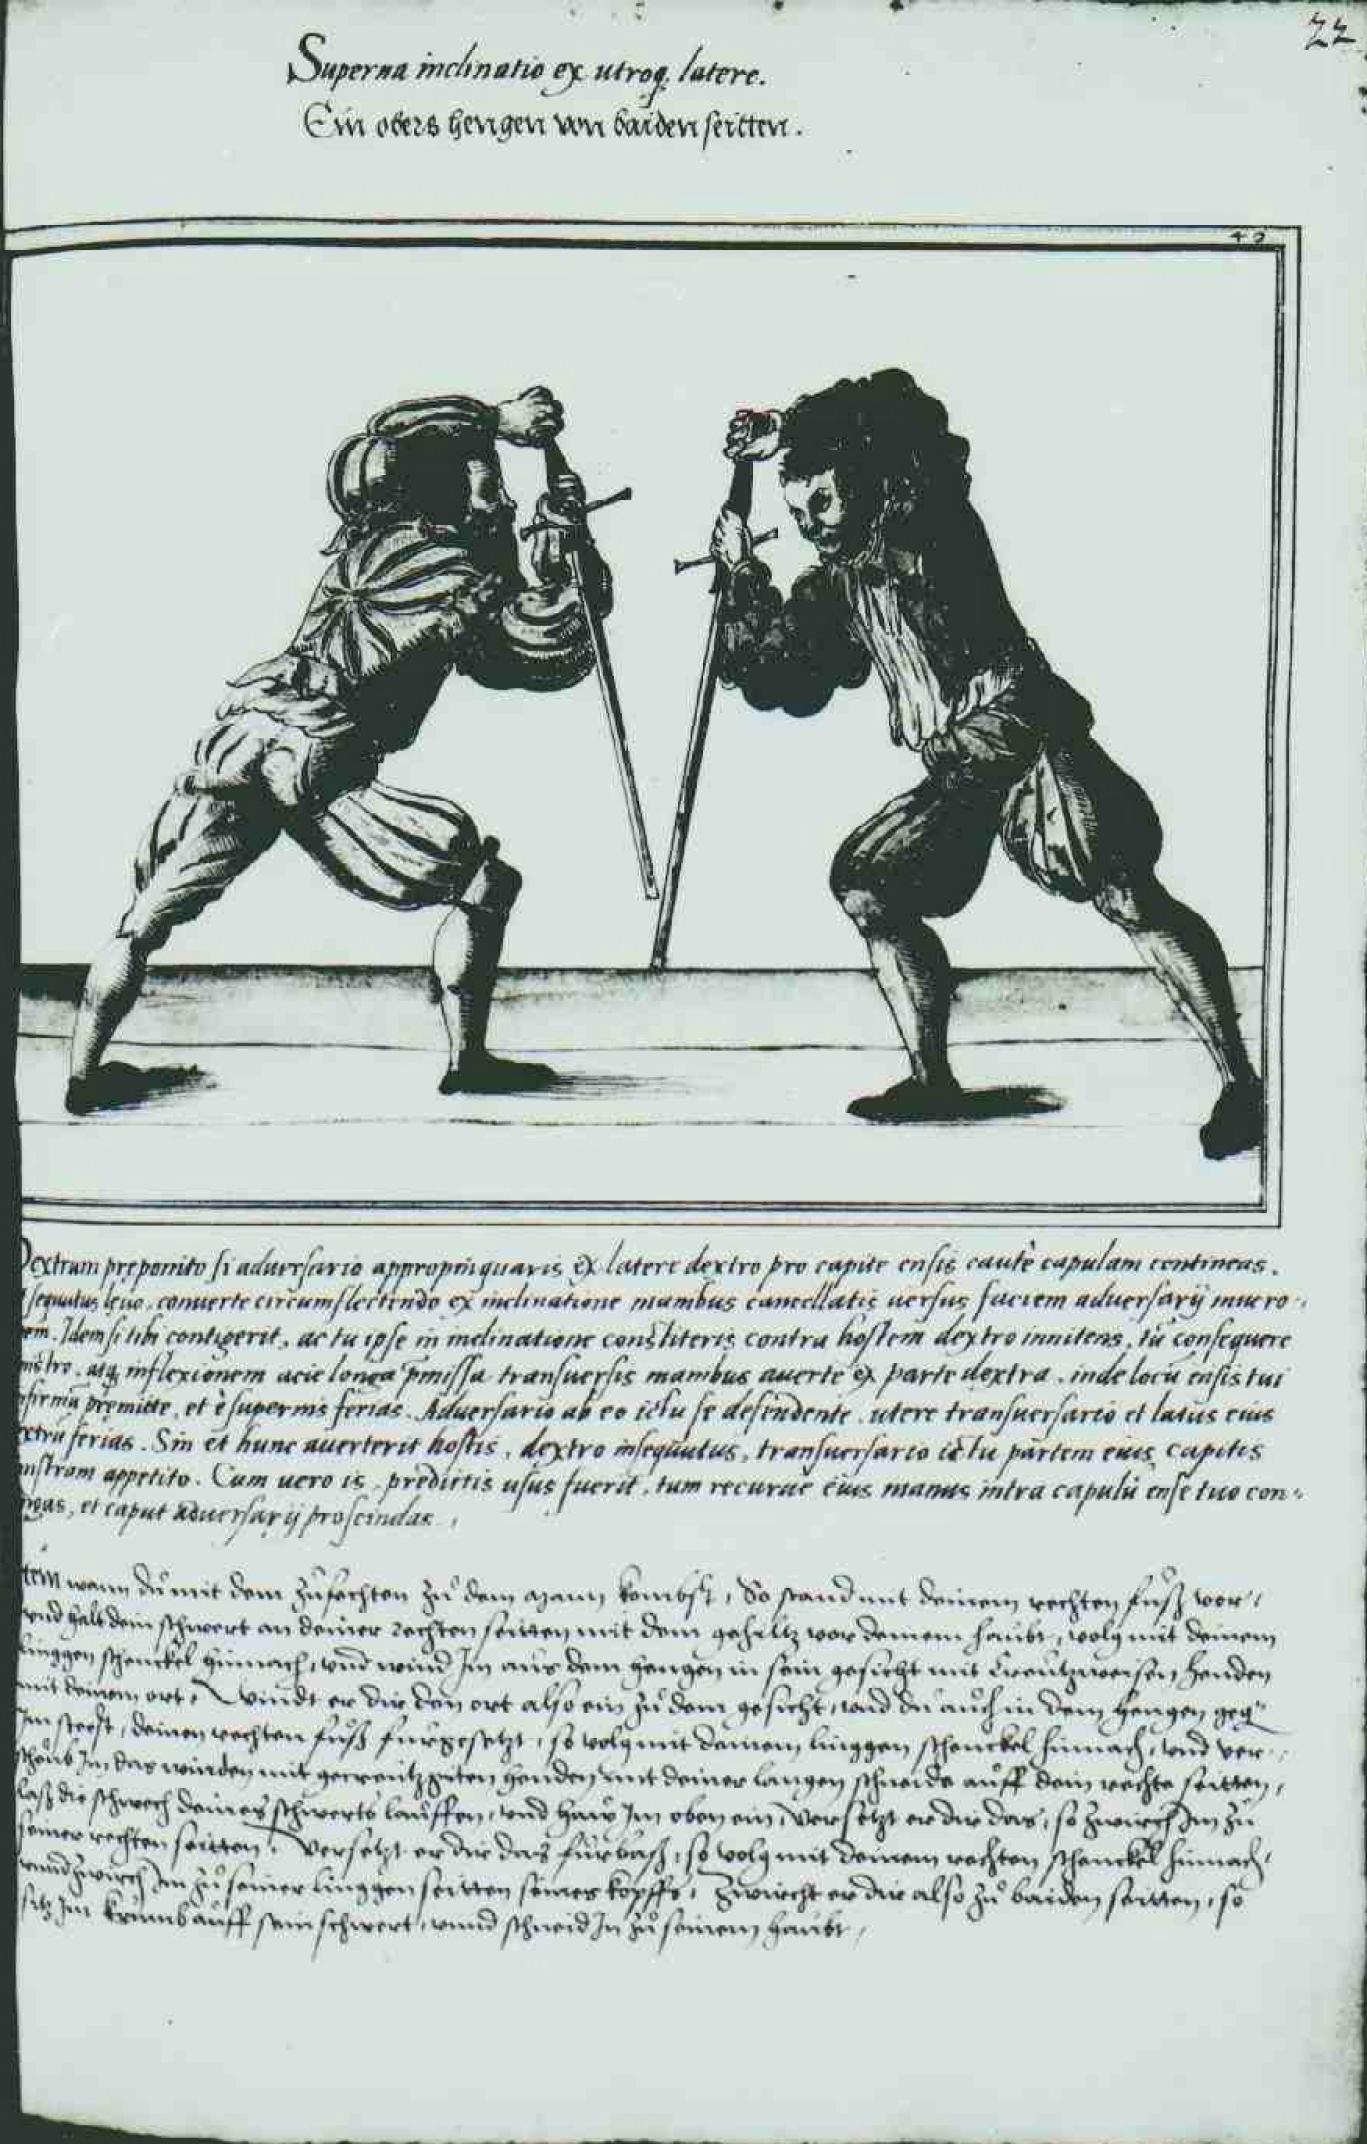 22
Superna inclinatio ex utroq. latere.
Ein obers hengen von baiden seitten.
Dextrum preponito si adversario appropinquaris et latere dextro pro capite ensis caute capulam contineas.
sequutus levo, converte circumflectendo ex inclinatione manibus cancellatis versus faciem adversarij mucro
em. Idem si tibi contigerit, ac tu ipse in inclinatione constiteris contra hostem dextro innitens, tu consequere
nistro, atq. inflexionem acie longa pmissa transversis manibus averte ex parte dextra, inde locu ensis tui
nfirmu premitte, et e supernis ferias. Adversario ab eo ictu se defendente, utere transversario et latus eius
extru ferias. Sin et hunc averterit hostis, dextro insequutus, transversario ictu partem eius capitis
nistram appetito. Cum vero is predictis usus fuerit, tum recurve eius manus intra capulu ense tuo con
ngas, et caput adversarij proscindas.
tem wann du mit dem zufechten zu dem mann kombst, So stand mit deinem rechten fuß vor,
vnd halt dein schwert an deiner rechten seitten mit dem gehiltz vor deinem haubt, volg mit deinem
linggen schenckel hinnach, vnd wind Im aus dem hengen in sein gesicht mit Creutzweisen henden
mit deinem ort. Windt er dir den ort also ein zu dem gesicht, vnd du auch in dem hengen geg
Im steest, deinen rechten fuß furgesetzt, so volg mit deinem linggen schenckel hinnach, vnd ver
scheub Im das winden mit gecreutzgeten henden mit deiner langen schneide auff dein rechte seitten,
laß die schwech deines schwerts lauffen, vnd haw Im oben ein, versetzt er dir das, so zwirch Im zu
seiner rechten seitten. Versetzt er dir das furbaß, so volg mit deinem rechten schenckel hinnach,
vnnd zwirch Im zu seiner linggen seitten seines kopffs. Zwircht er dir also zu baiden seitten, so
sitz Im krumb auff sein schwert, vnnd schneid In zu seinem haubt.